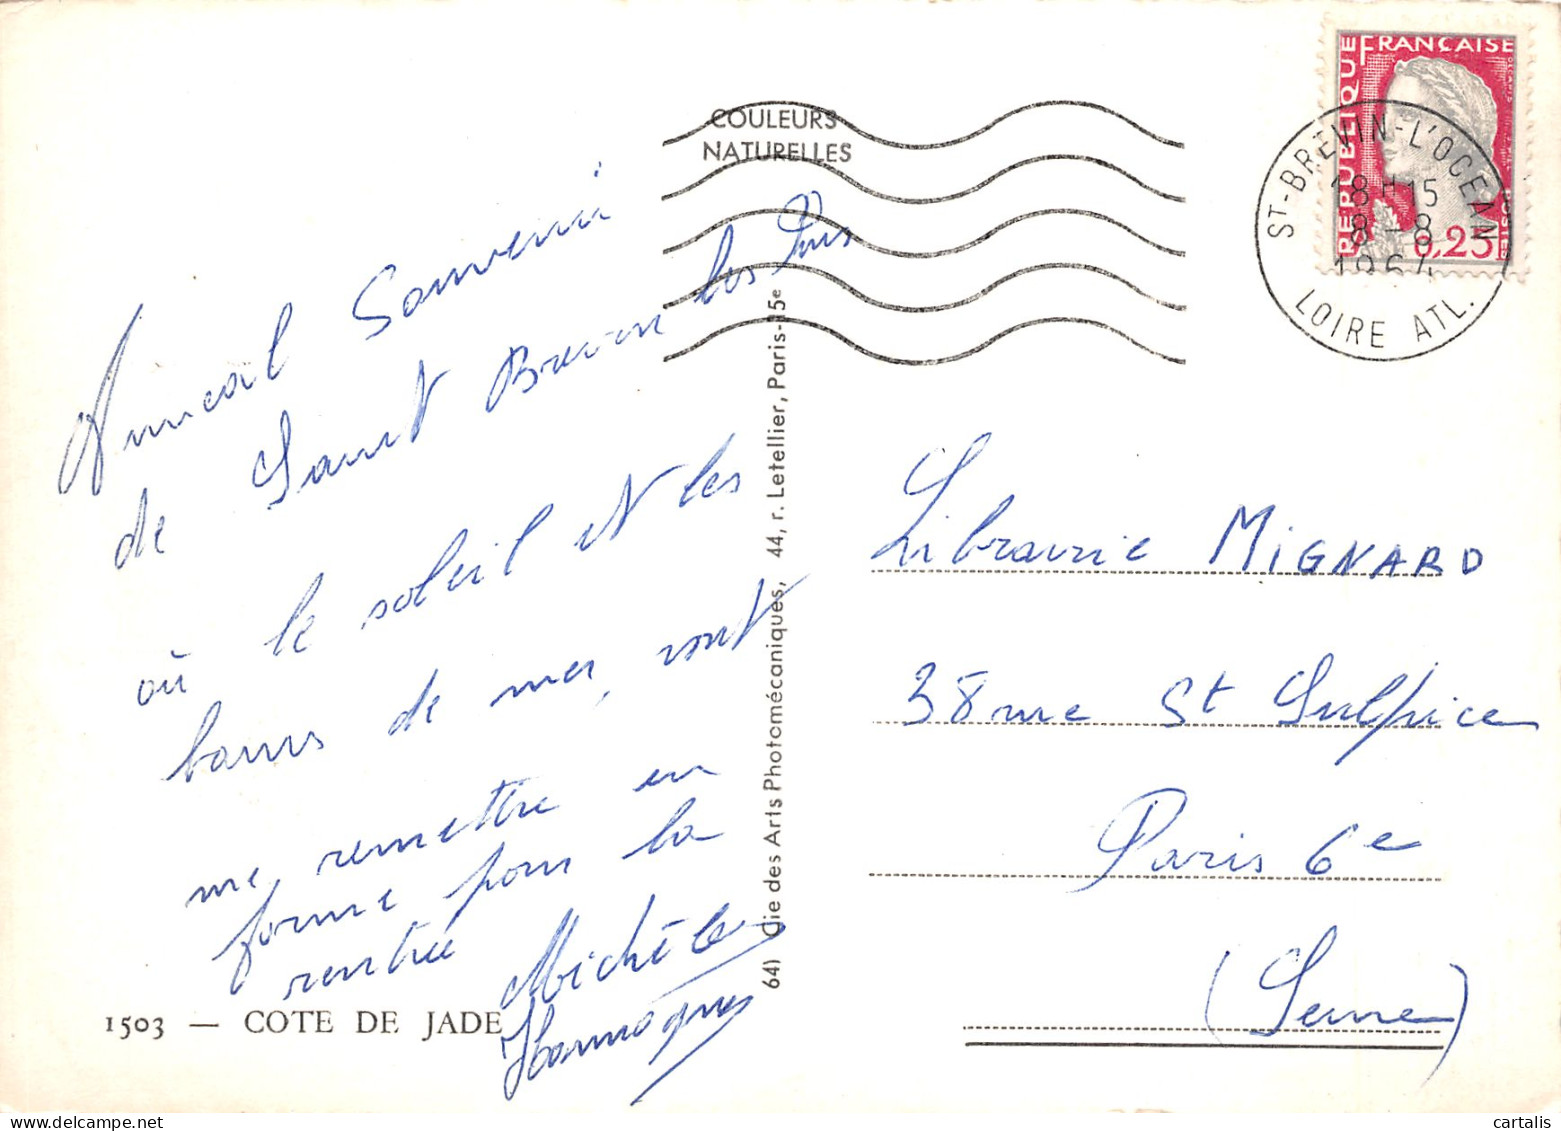 COULEURS
NATURELLES
REPUBLIQUE FRANÇAISE
0,25
ST-BREVIN-L'OCEAN
18H15
8-8
1964
LOIRE ATL.
Amical Souvenir
de Saint Brevin les Pins
où le soleil et les
bains de mer vont
me remettre en
forme pour la
rentrée
Michèle
64) Cie des Arts Photomécaniques, 44, r. Letellier, Paris-15e
Librairie MIGNARD
38 rue St Sulpice
Paris 6e
(Seine)
1503 — COTE DE JADE
cartalis